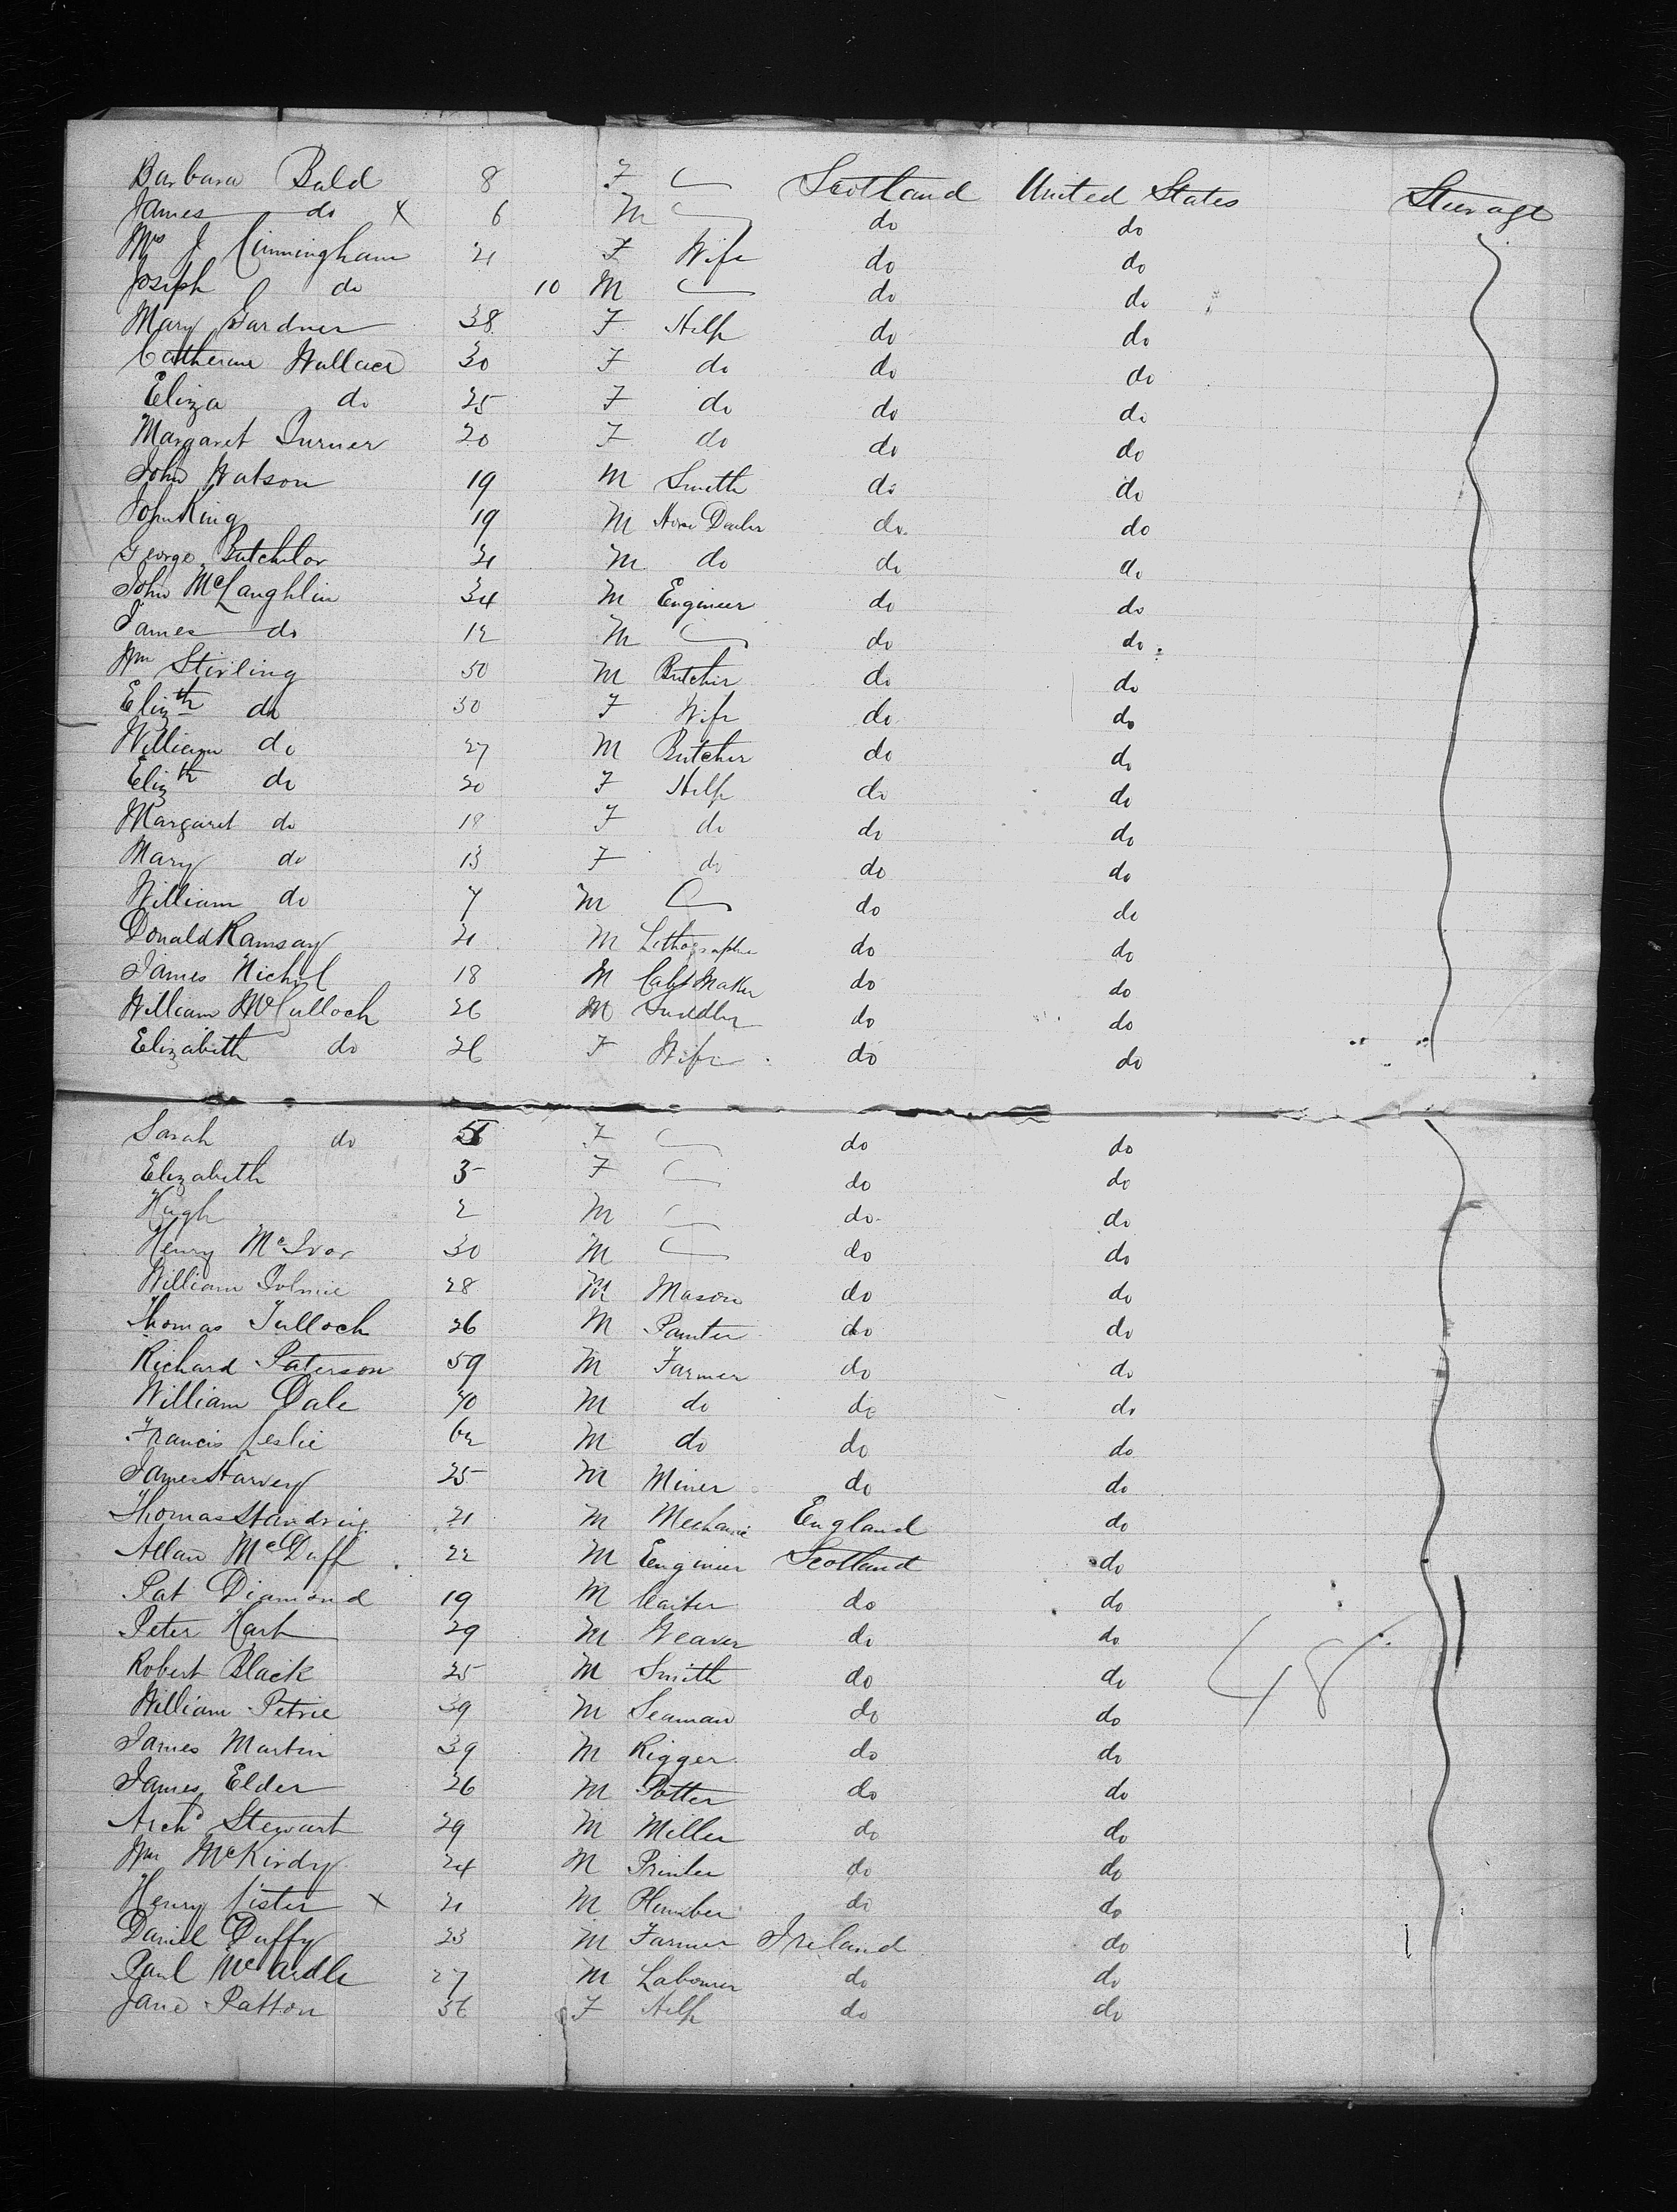 Barbara Bald 8 F Scotland United States Steerage
James do x 6 M do do
Mrs J Cunningham 21 F Wife do do
Joseph do 10 M do do
Mary Gardner 38 F Help do do
Catherine Wallace 30 F do do do
Eliza do 25 F do do do
Margaret Turner 20 F do do do
John Watson 19 M Smith do do
John King 19 M Horse Dealer do do
George Butchelor 21 M do do do
John McLaughlin 34 M Engineer do do
James do 12 M do do
Wm Stirling 50 M Butcher do do
Elizth do 50 F Wife do do
William do 27 M Butcher do do
Elizth do 20 F Help do do
Margaret do 18 F do do do
Mary do 13 F do do do
William do 7 M do do
Donald Ramsay 21 M Lithographer do do
James Nichol 18 M Cabt Maker do do
William McCulloch 26 M Saddler do do
Elizabeth do 26 F Wife do do
Sarah do 5 F do do
Elizabeth 3 F do do
Hugh 2 M do do
Henry McIvor 30 M do do
William Tolmie 28 M Mason do do
Thomas Tulloch 26 M Painter do do
Richard Paterson 59 M Farmer do do
William Dale 40 M do do do
Francis Leslie 62 M do do do
James Harvey 25 M Miner do do
Thomas Standring 21 M Mechanic England do
Allan McDuff 22 M Engineer Scotland do
Pat Diamond 19 M Carter do do
Peter Hart 29 M Weaver do do
Robert Black 25 M Smith do do 48
William Petrie 39 M Seaman do do
James Martin 39 M Rigger do do
James Elder 26 M Potter do do
Archd Stewart 29 M Miller do do
Wm McKirdy 24 M Printer do do
Henry Lister x 21 M Plumber do do
Daniel Duffy 23 M Farmer Ireland do
Paul McArdle 27 M Labourer do do
Jane Patton 36 F Help do do